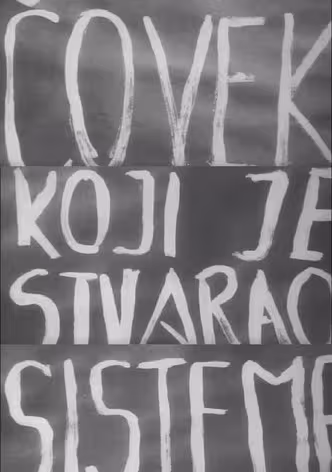 ČOVEK
KOJI JE
STVARAO
SISTEME